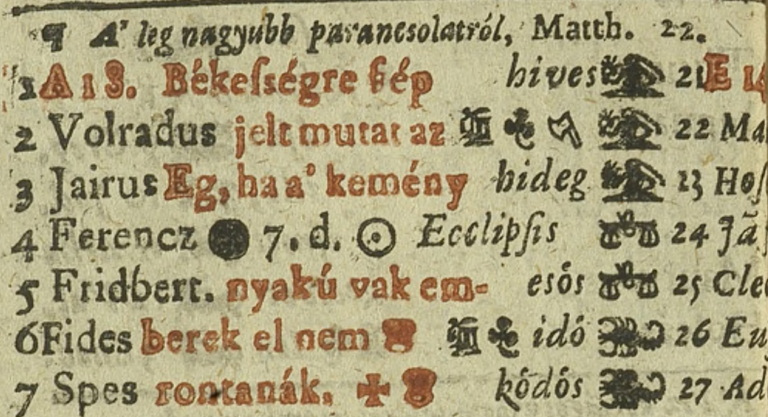 ¶ A' leg nagyubb parancsolatról, Matth. 22.
1 A 18. Békeſségre ſép hives 21 E 14
2 Volradus jelt mutat az 22 Ma
3 Jairus Eg, ha a' kemény hideg 23 Hoſ
4 Ferencz 7. d. ☉ Ecclipſis 24 Já
5 Fridbert. nyakú vak em- esós 25 Cle
6 Fides berek el nem idó 26 Eu
7 Spes rontanák. ✠ ködös 27 Ad